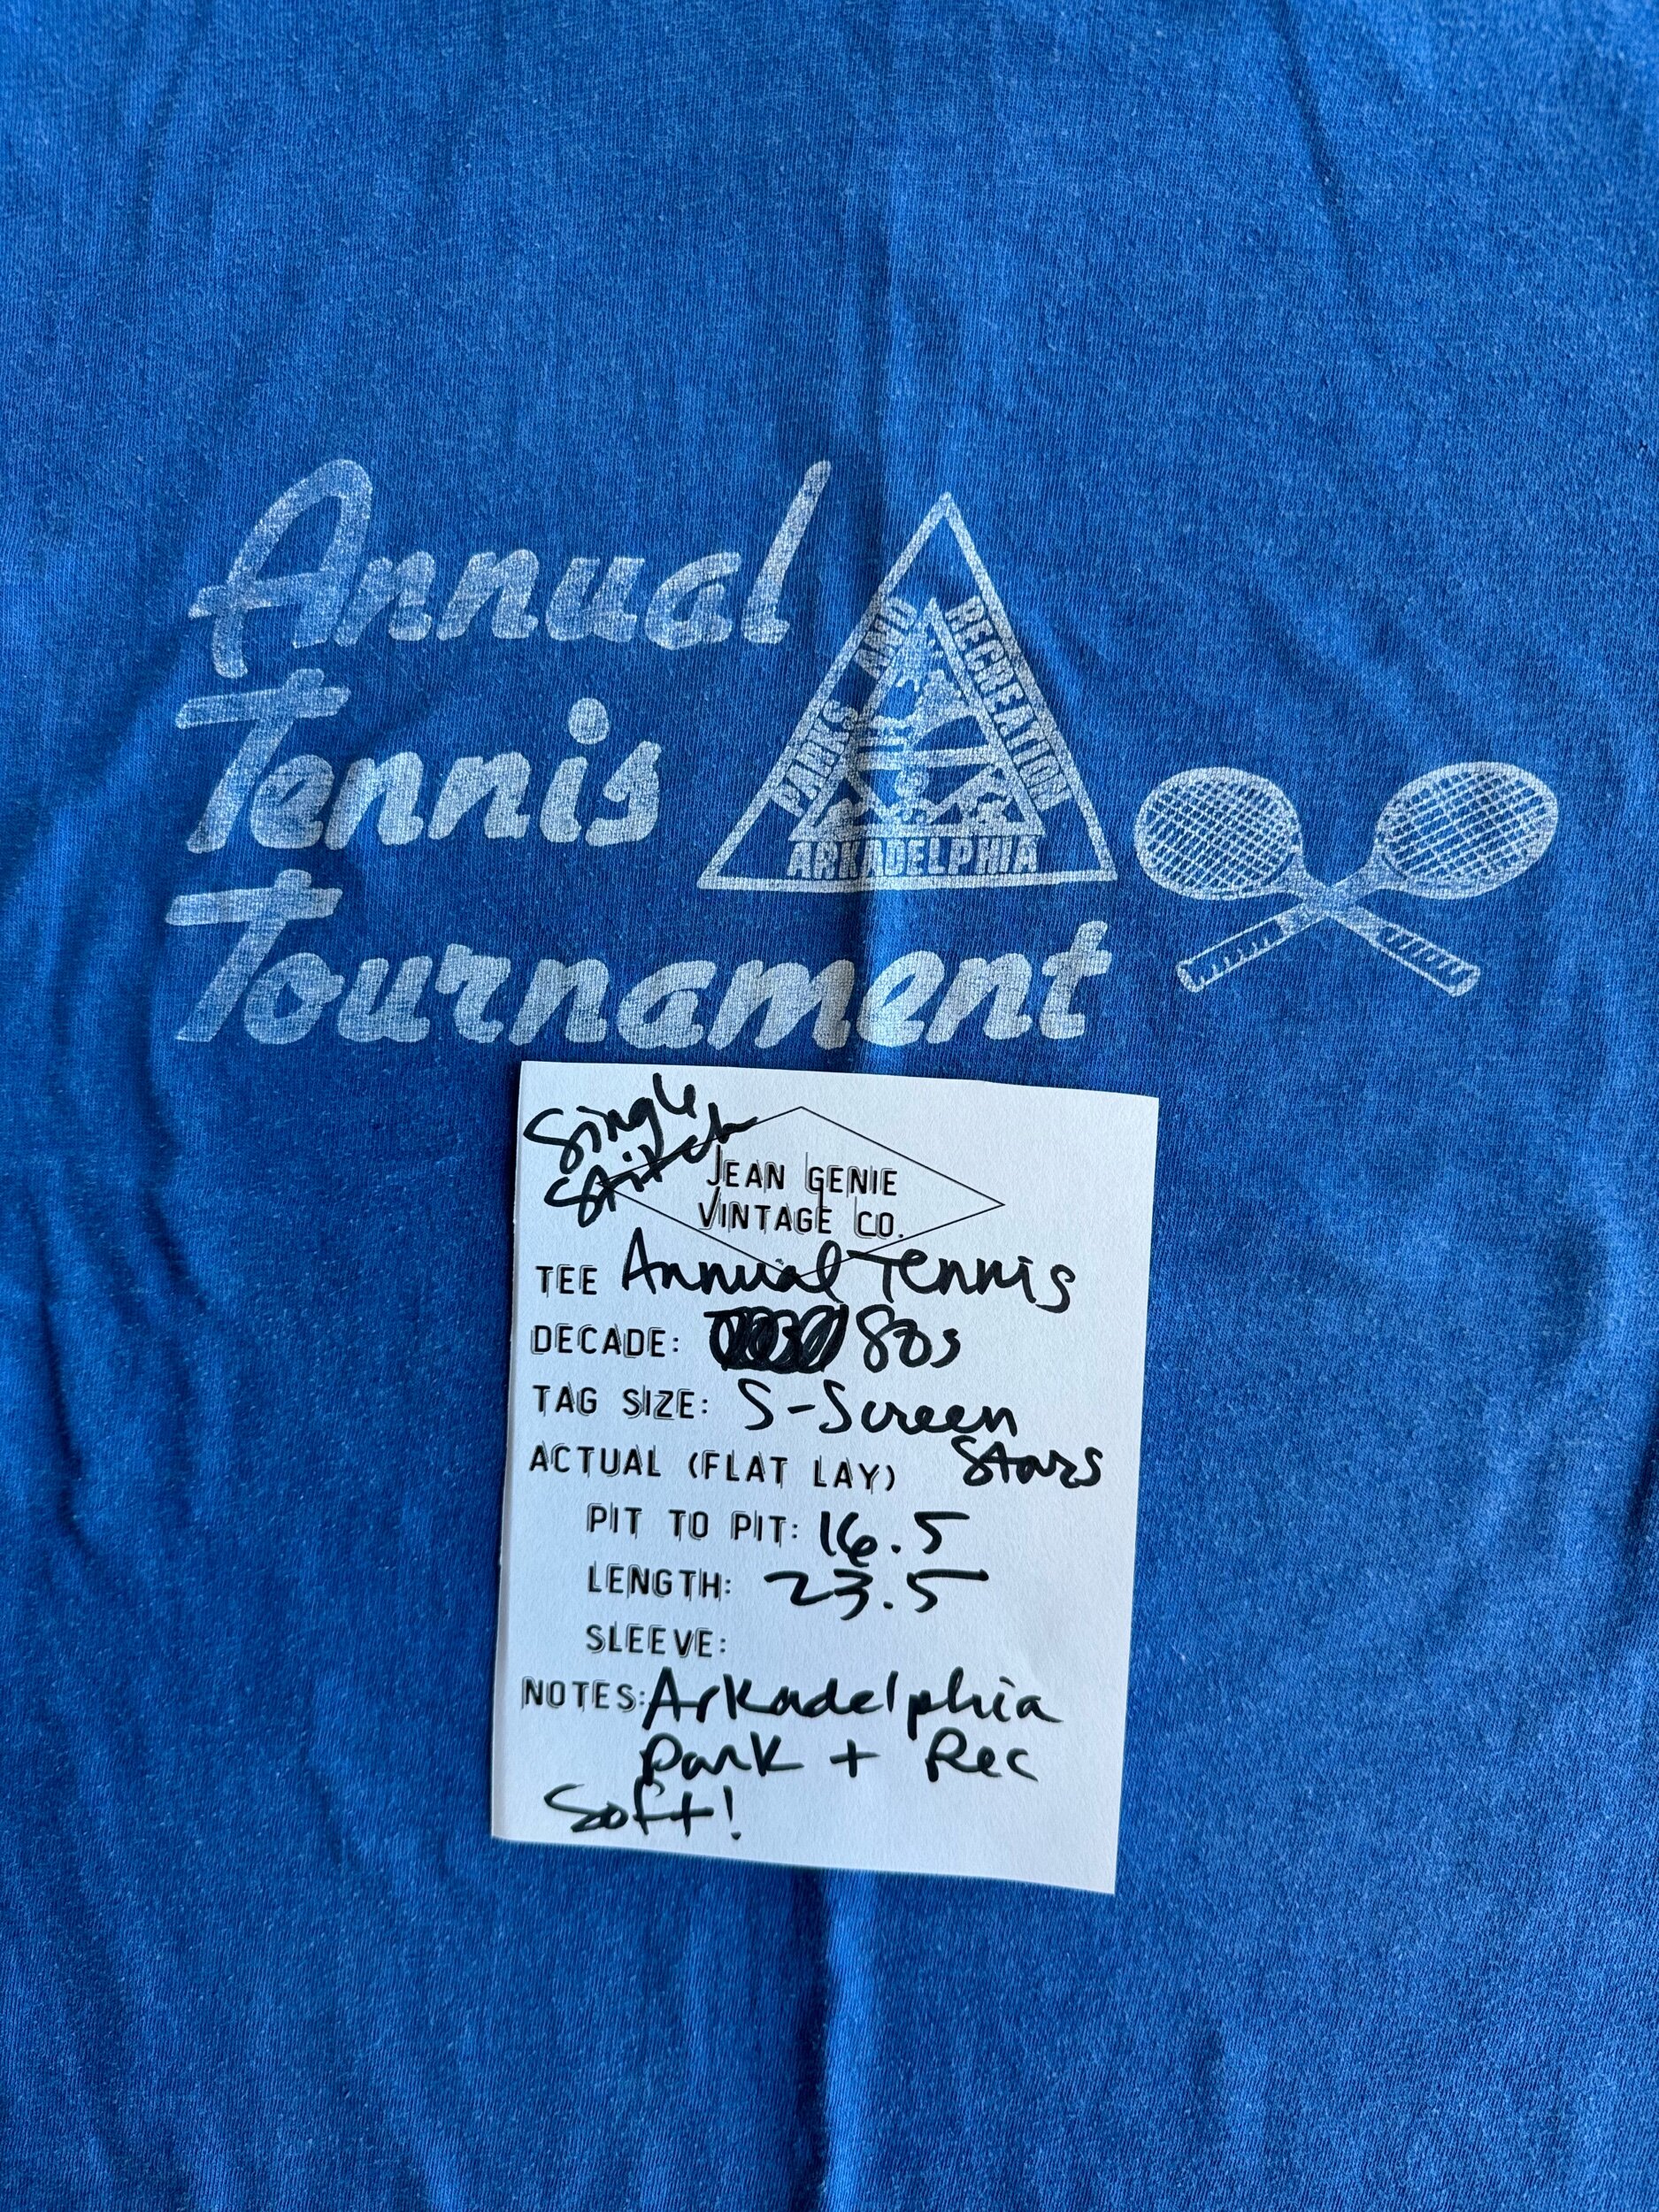 Annual
Tennis
Tournament
PARKS AND RECREATION
ARKADELPHIA
Single
Stitch
JEAN GENIE
VINTAGE CO.
TEE Annual Tennis
DECADE: 80s
TAG SIZE: S-Screen
Stars
ACTUAL (FLAT LAY)
PIT TO PIT: 16.5
LENGTH: 23.5
SLEEVE:
NOTES: Arkadelphia
Park + Rec
Soft!